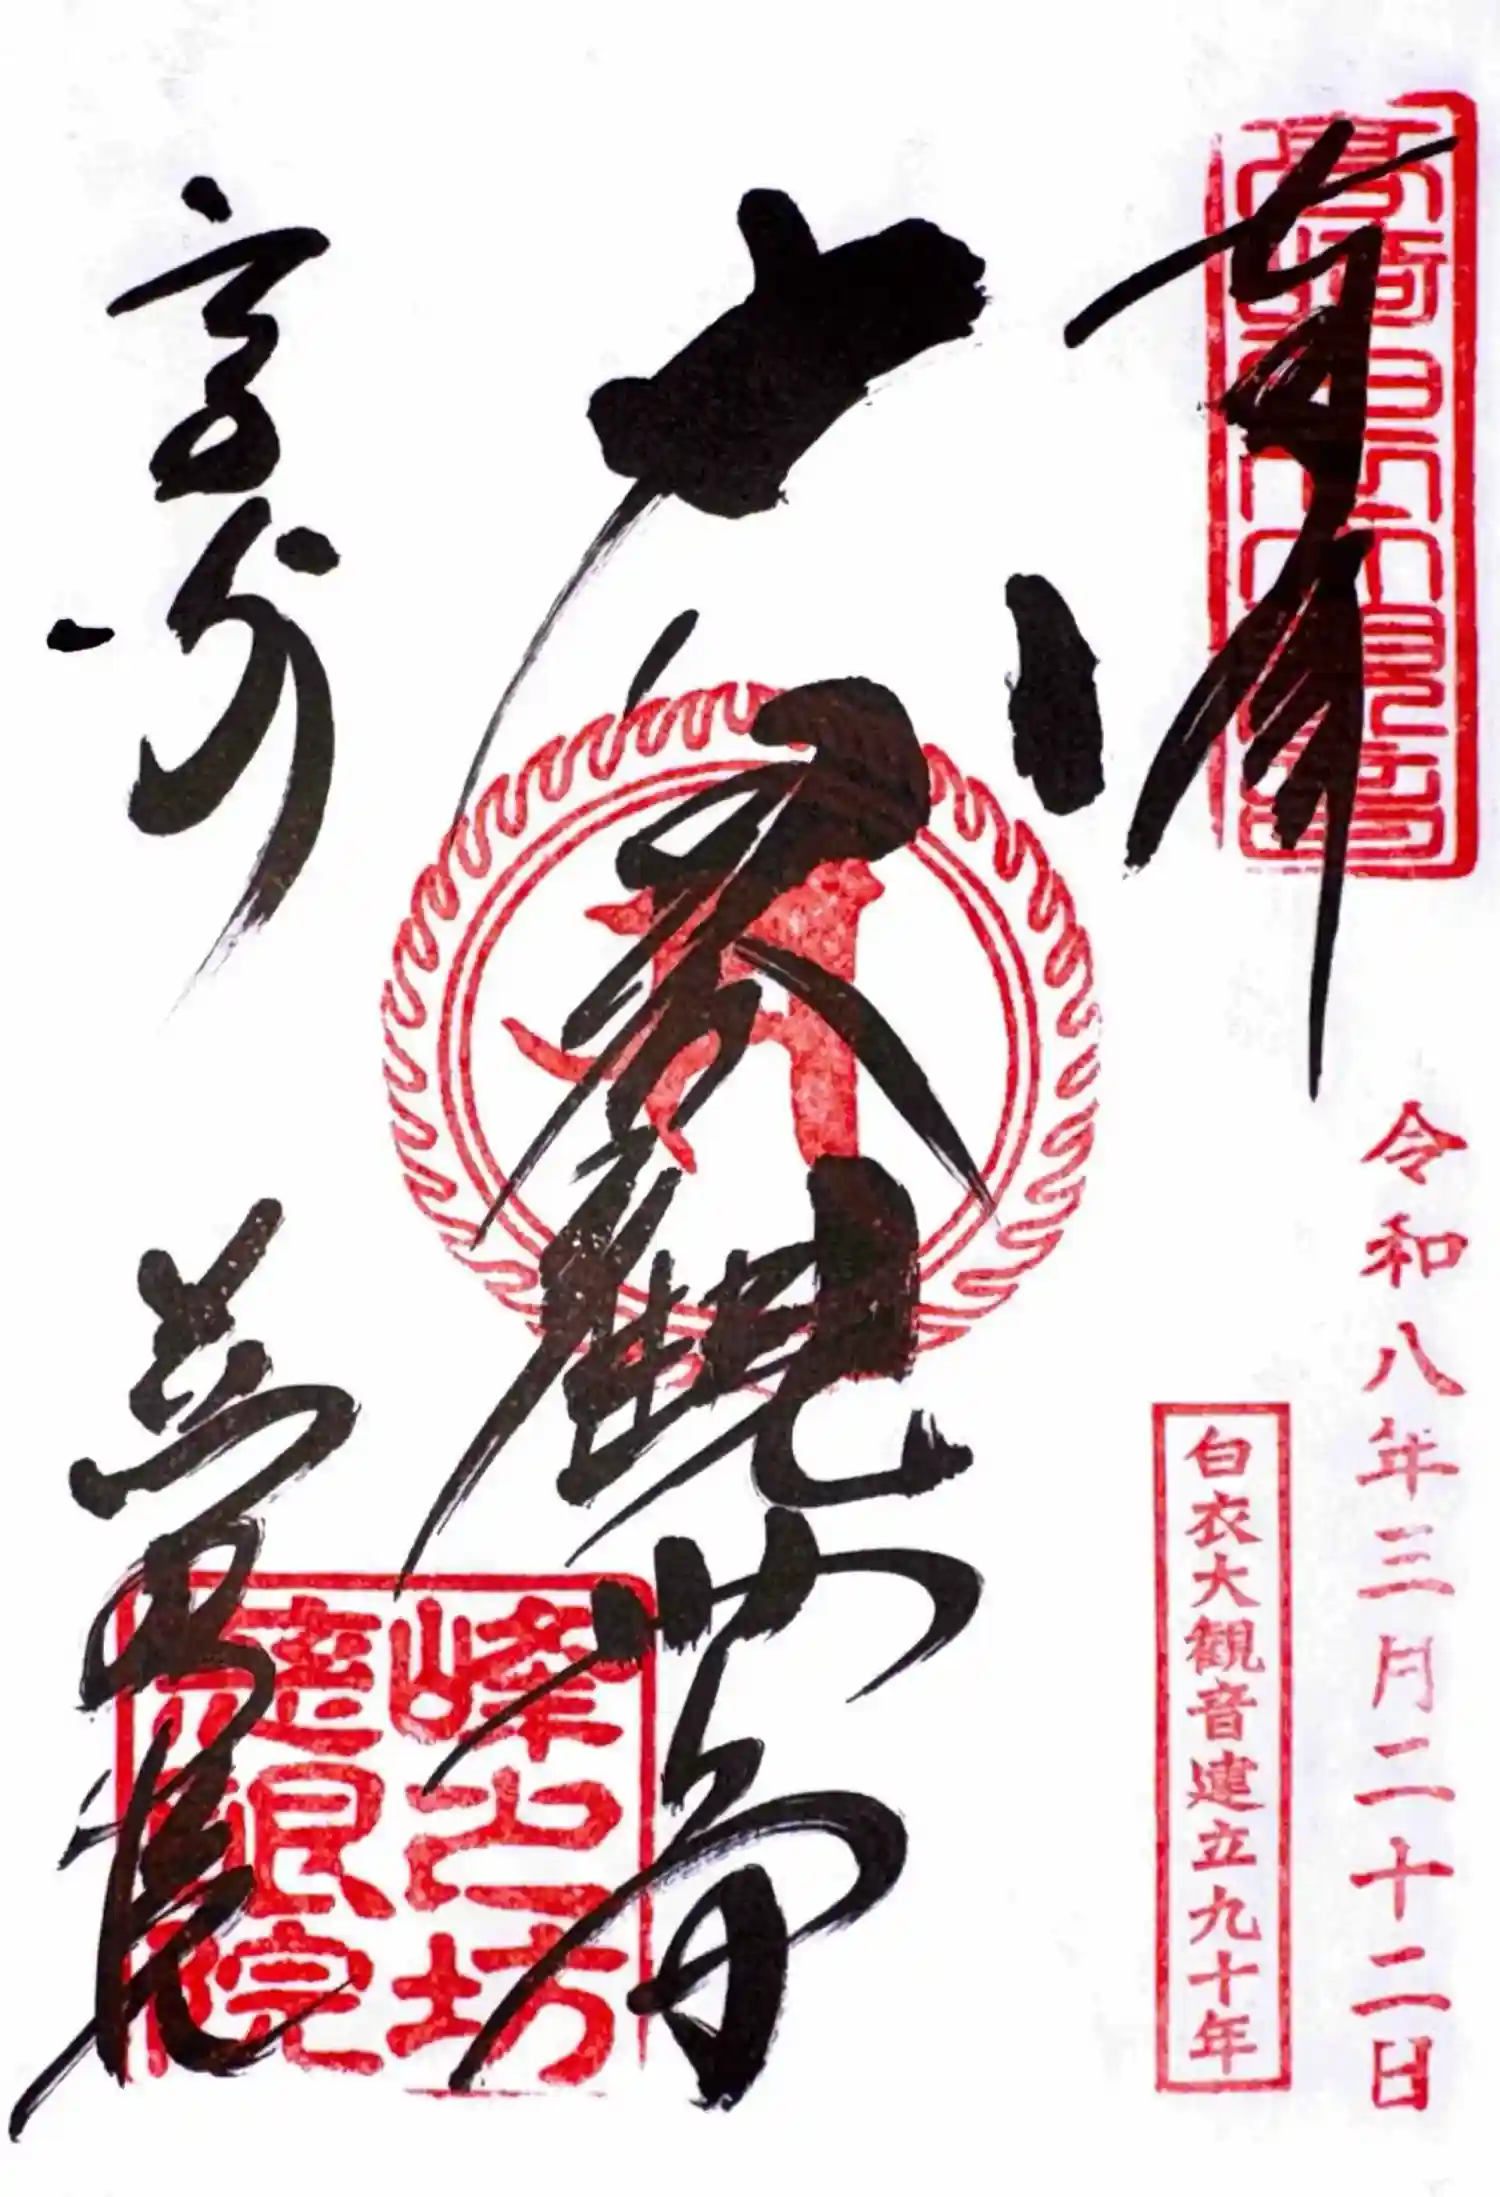 奉拝
高崎白衣大観音
令和八年三月二十二日
白衣大観音建立九十年
衣観世音
峰之坊
慈眼院
高崎
慈眼院